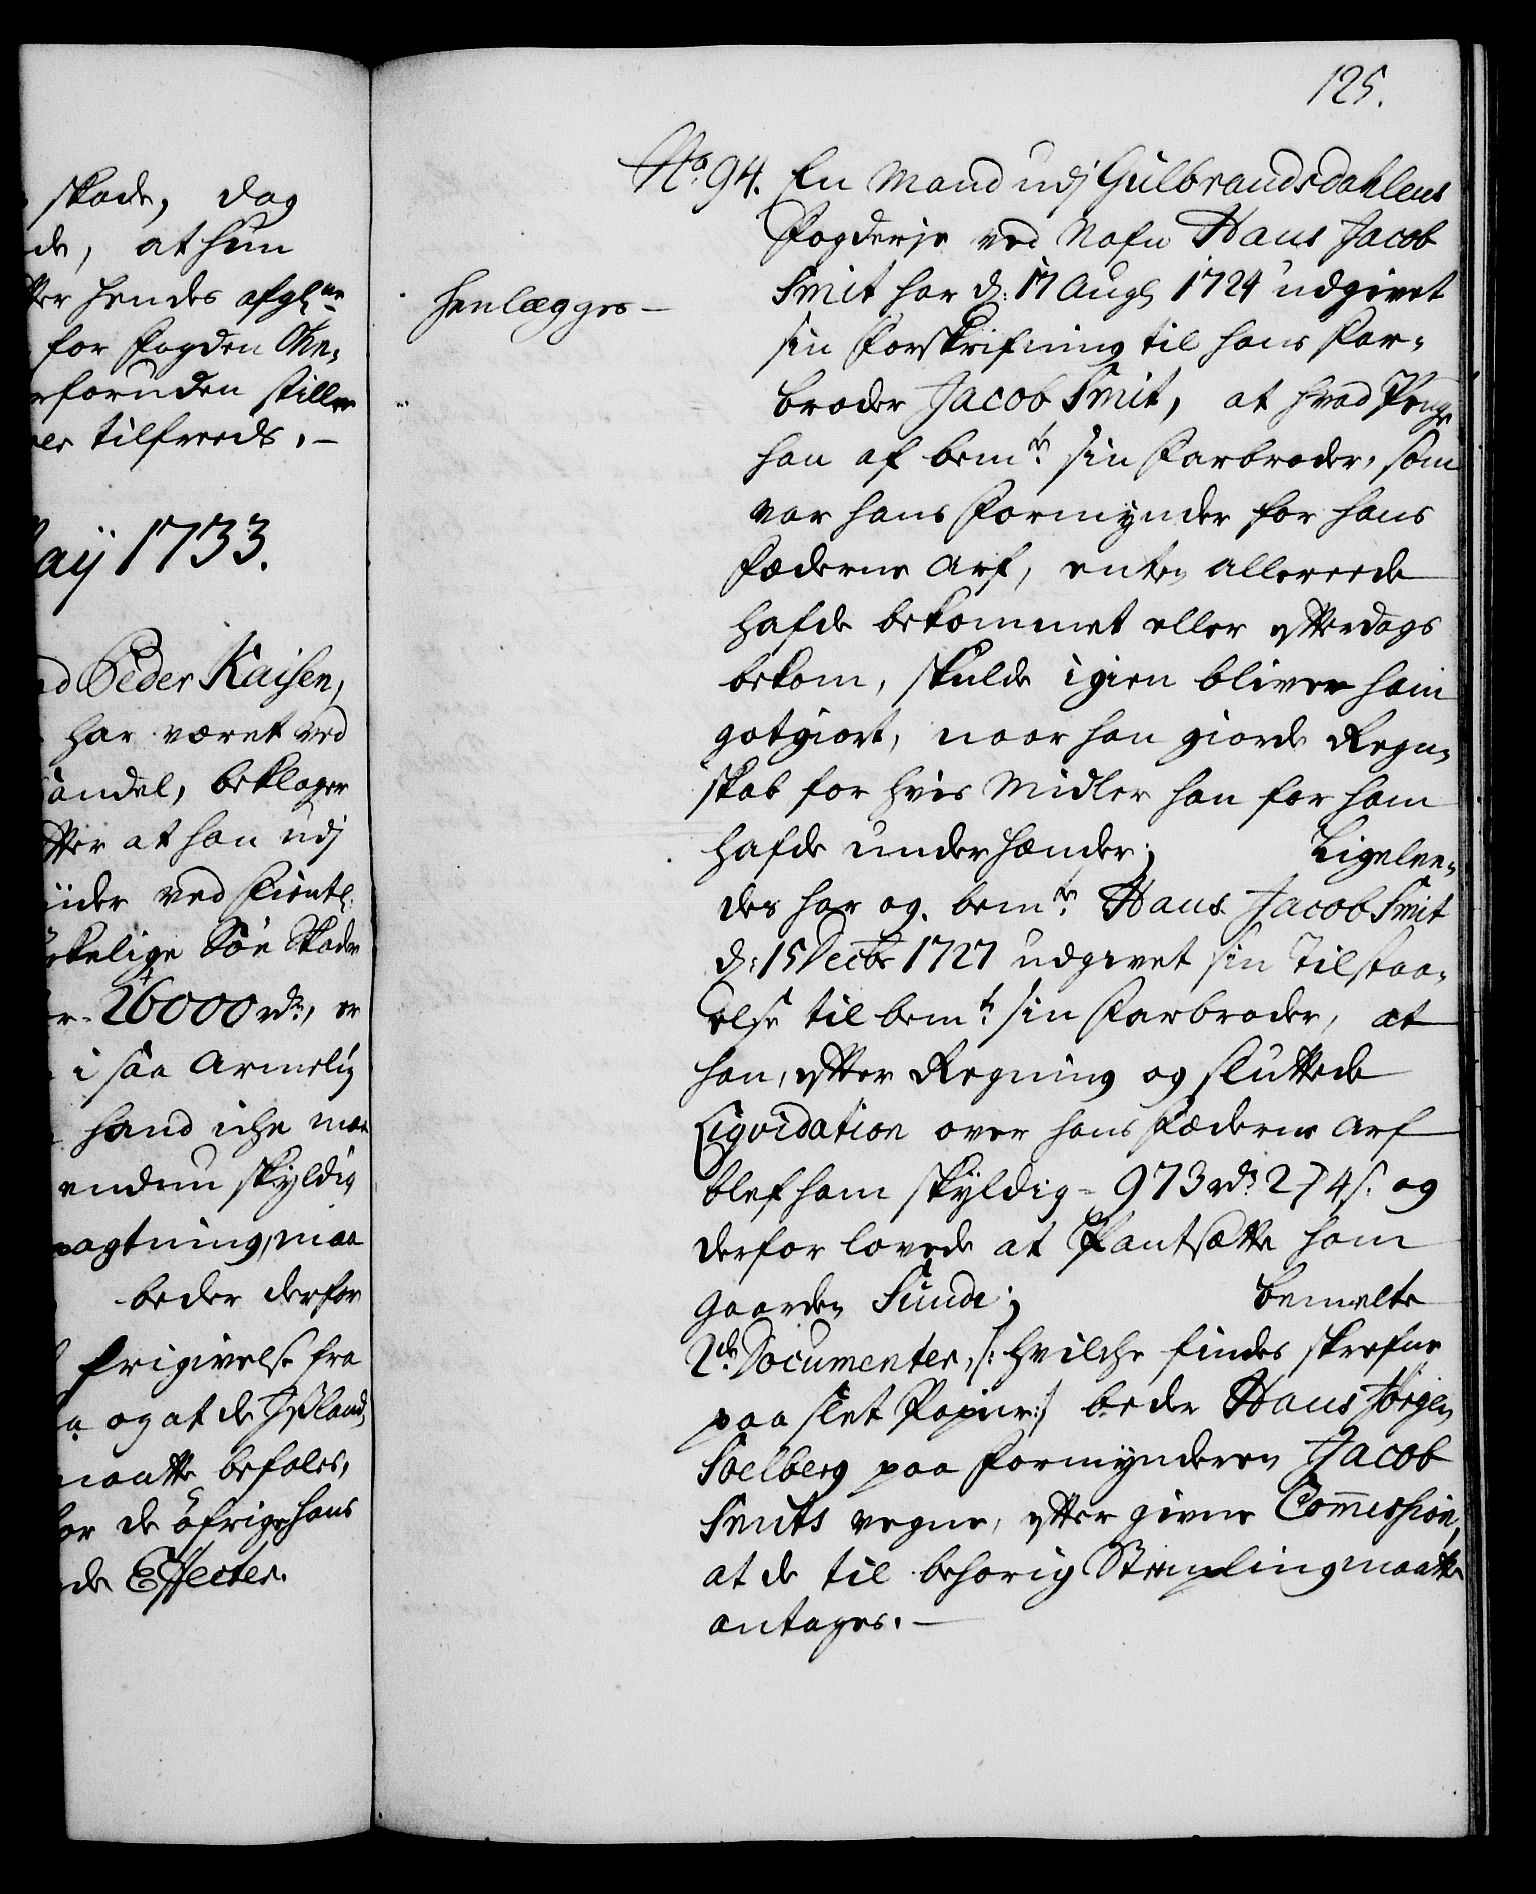 skade, dog
de, at hun
ter hendes afgl.ne
for fogden Ohn-
rforuden stiller
tilfreeds. —
Maij 1733.
Peder Kaisen,
har været ved
andel, beklager
tter at han udj
iider ved Fientl:
rkelige Söe Skader
26000 rdr, er
i saa Armelig
hand icke mere
endnu skyldig
pagtning, maa
beder derfor
frigivelse fra
og at de Jßland
maatte befales,
for de öfrige hans
de Effecter.
125.
No. 94. En Mand udj Gulbrandsdahlens
Fogderje ved Nafn Hans Jacob
Smit har d: 17 Aug. 1724 udgivet
sin Forskrifning til hans Far-
broder Jacob Smit, at hvad Penge
han af bem.te sin Farbroder, som
var hans Formynder for hans
Fæderne Arf, enten allereede
hafde bekommet eller efterdags
bekom, skulde igien blive ham
gotgiort, naar han giorde Regn-
skab for hvis Midler han for ham
hafde under hænder; Ligelee-
des har og bem.te Hans Jacob Smit
d: 15 Decbr 1727 udgivet sin Tilstaa-
else til bem.te sin Farbroder, at
han, efter Regning og sluttede
Liqvidation over hans Fæderne Arf
blef ham skyldig - 973 rdr 2 ƒ 4 s. og
derfor lovede at Pantsætte ham
Gaarden Sunde; bemelte
2de Documenter, /: hvilche findes skrefne
paa slet Papiir :/ beder Hans Jörgen
Soelberg paa Formynderen Jacob
Smits vegne, efter givne Commission,
at de til behörig Stempling maatte
antages. —
Henlægges —